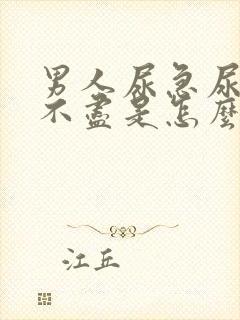 男人尿急尿
不盡是怎麼
江丘